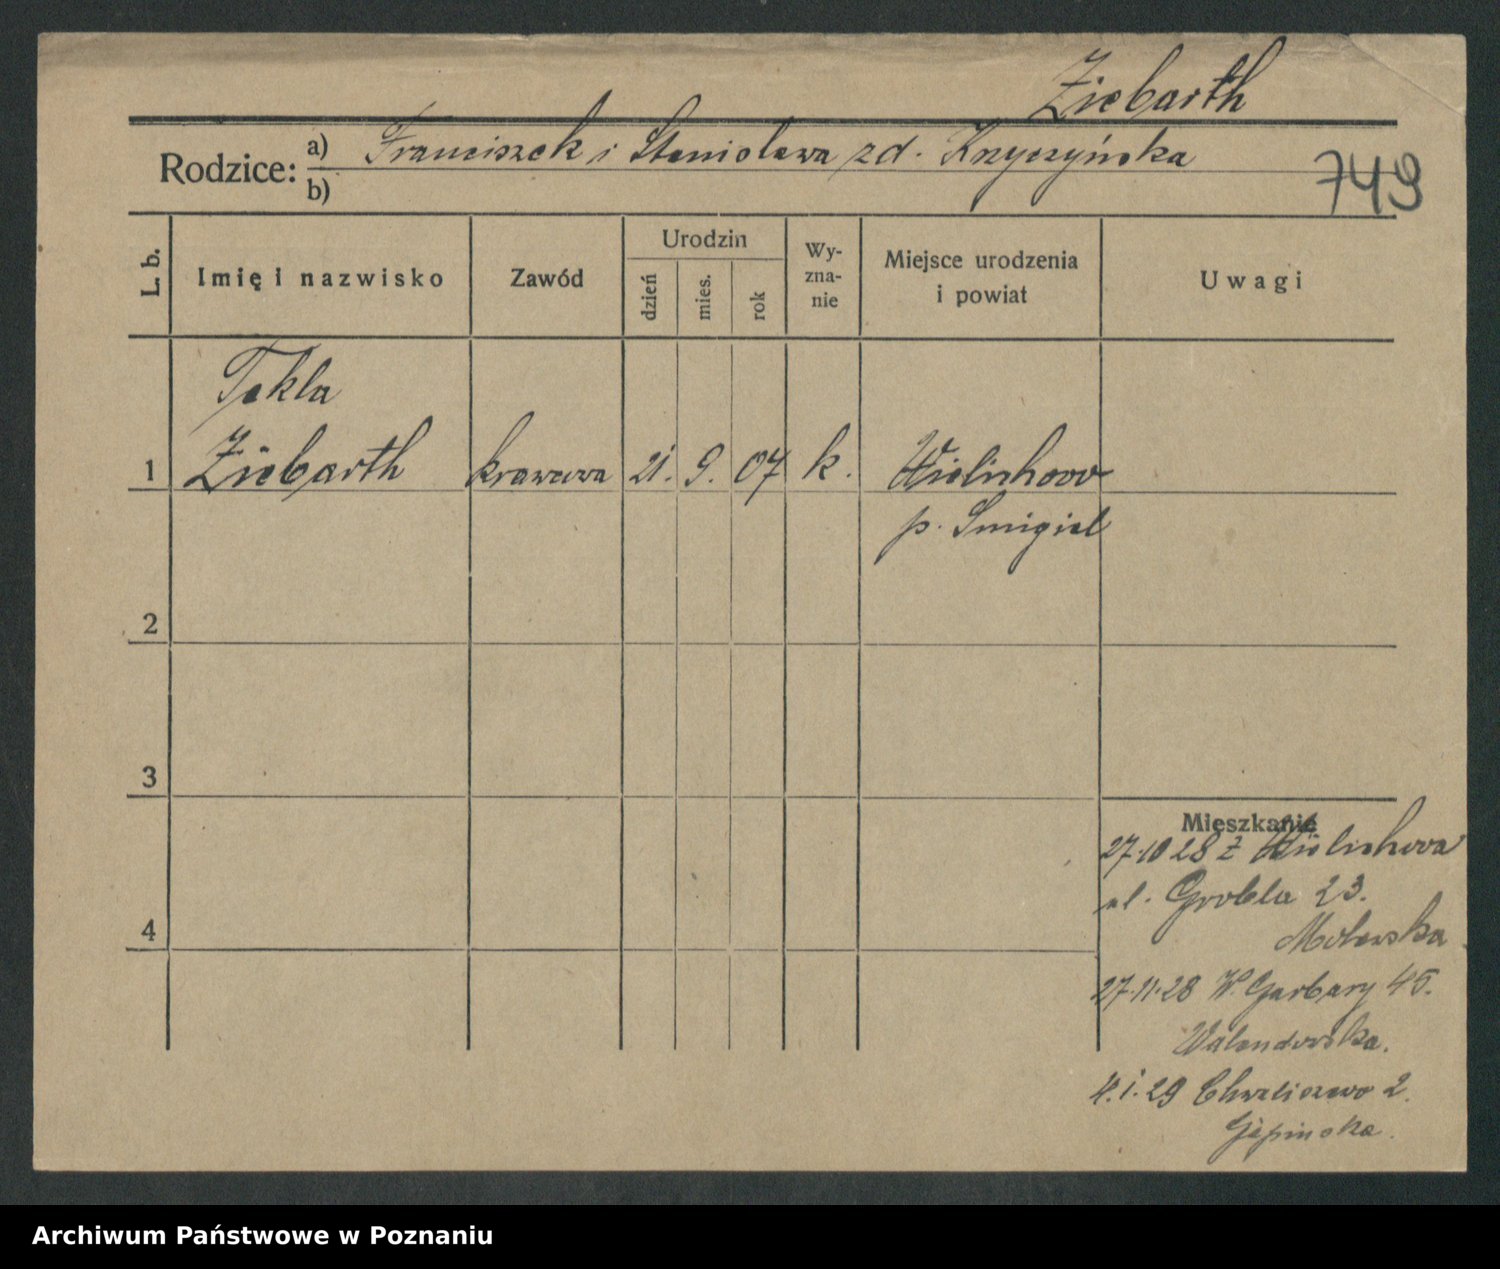 Ziebarth
Rodzice: a) Franciszek i Stanisława zd. Krzyczyńska
b)
749
L. b.
Imię i nazwisko
Zawód
Urodzin
dzień
mies.
rok
Wy-
zna-
nie
Miejsce urodzenia
i powiat
Uwagi
Tekla
1 Ziebarth krawcowa 21. 9. 07 k. Wielichowo
p. Smigiel
2
3
4
Mieszkanie
27.10 28 z Wielichowa
ul. Grobla 23.
27.11.28 W. Garbary 45.
4.1.29 Chwaliszewo 2.
Archiwum Państwowe w Poznaniu